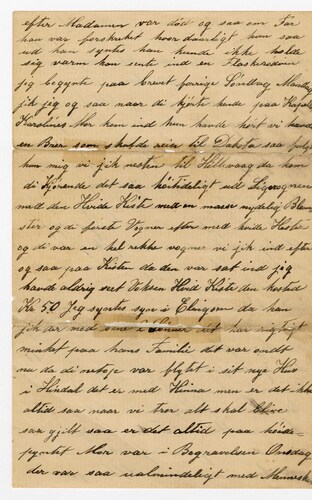 efter Madamen var død og saa om Far
han var forskrekket hvor daarligt han saa
ud han syntes han kunde ikke holde
sig varm han sente ind en Flaske
jeg begynte paa brevet forige Søndag Mandag
jik jeg og saa naar di kjørte hende paa Kapels
Karolines Mor kom ind hun havde hørt vi havde
en Broer som skulde reise til Dakota saa fulgte
hun mig vi jik nesten til Hillevaag da kom
di Kjørende det saa høitideligt ud Ligvognen
med den Hvide Kiste med en masse nydelig Blom
ster og di første Vogner efter med hvide Heste
og di var en hel rekke vogner vi jik ind efter
og saa paa Kisten da den var sat ind jeg
havde aldrig seet Voksen Hvid Kiste den kosted
Kr 50 Jeg syntes syn i
jik
minket paa hans Familie det var ondt
nu da di netop var flyt i sit nye Hus
i Hindal det er med Hinna men er det ikke
altid saa naar vi tror alt skal blive
saa gjilt saa er det altid paa høide-
pynktet Mor var i Begravelsen Onsdag
der var saa ualmindeligt med Mennesk